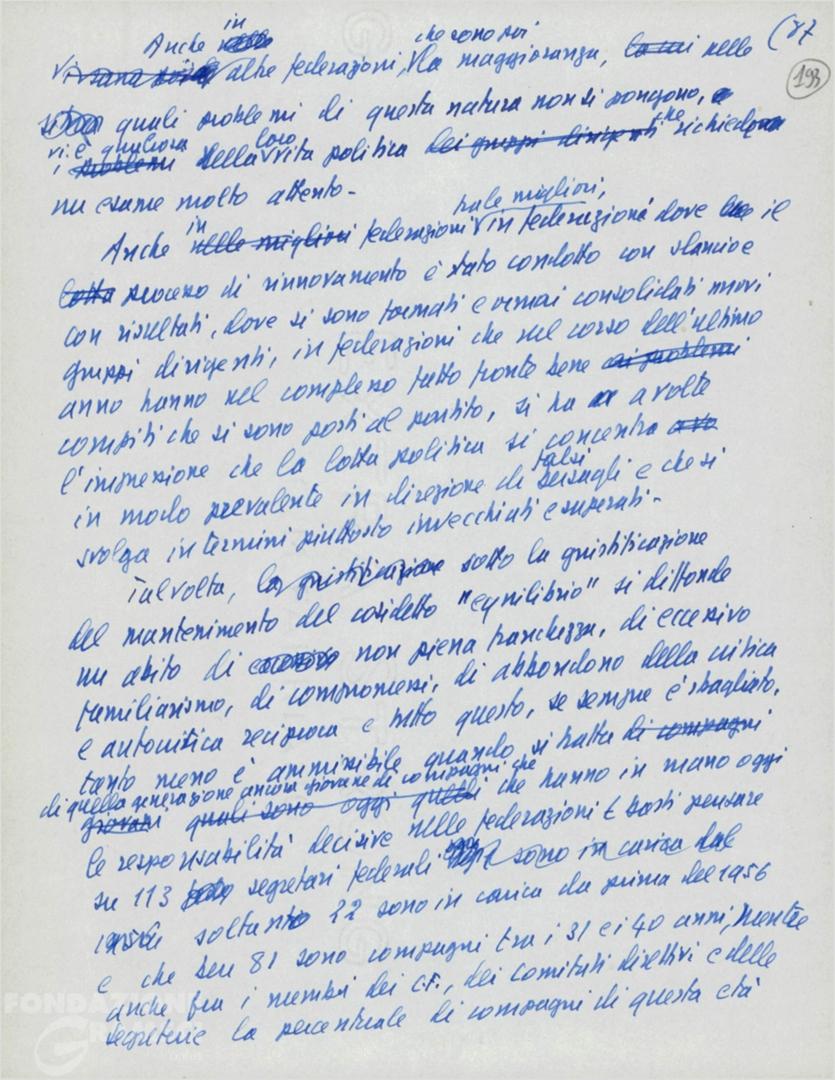 (87
193
Anche in altre federazioni, che sono poi la maggioranza, nelle
quali problemi di questa natura non si pongono,
vi è qualcosa della loro vita politica dei gruppi dirigenti che richiede
un esame molto attento.
Anche in nelle migliori federazioni tra le migliori, in federazioni dove il
lotta processo di rinnovamento è stato condotto con slancio e
con risultati, dove si sono formati e ormai consolidati nuovi
gruppi dirigenti, in federazioni che nel corso dell'ultimo
anno hanno nel complesso fatto fronte bene ai problemi
compiti che si sono posti al partito, si ha a volte
l'impressione che la lotta politica si concentra
in modo prevalente in direzione di falsi bersagli e che si
svolga in termini piuttosto invecchiati e superati.
Talvolta, la giustificazione sotto la giustificazione
del mantenimento del cosidetto "equilibrio" si diffonde
un abito di non piena franchezza, di eccessivo
familiarismo, di compromessi, di abbandono della critica
e autocritica reciproca e tutto questo, se sempre è sbagliato,
tanto meno è ammissibile quando si tratta di compagni
di quella generazione ancora giovane di compagni che
giovani quali sono oggi quelli che hanno in mano oggi
le responsabilità decisive nelle federazioni E basti pensare
su 113 segretari federali sono in carica dal
1956 soltanto 22 sono in carica da prima del 1956
e che ben 81 sono compagni tra i 31 e i 40 anni, mentre
anche fra i membri dei C.F., dei comitati direttivi e delle
segreterie la percentuale di compagni di questa età
FONDAZIONE
GRAMSCI